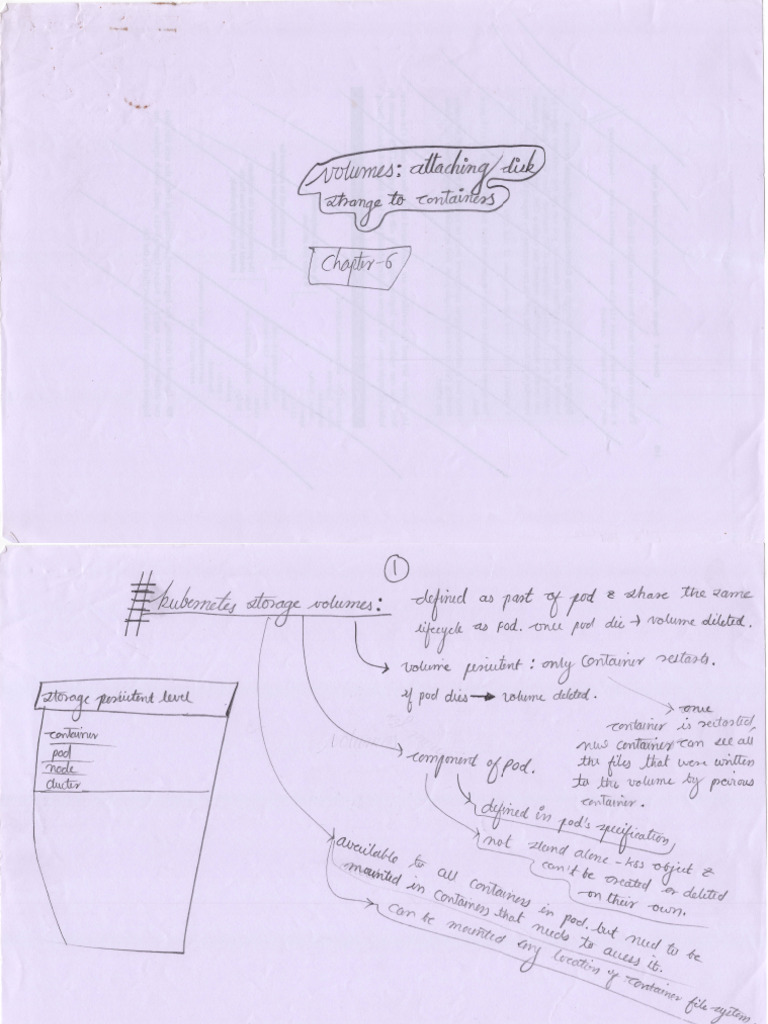 volumes: attaching disk
strange to containers
Chapter-6
1
# kubernetes storage volumes:
defined as part of pod & share the same
lifecycle as pod. once pod die → volume deleted.
volume persistent: only container restarts.
if pod dies → volume deleted.
once
container is restarted,
new container can see all
the files that were written
to the volume by pervious
container.
storage persistent level
container
pod
node
cluster
component of pod.
defined in pod's specification
not stand alone - k8s object &
can't be created or deleted
on their own.
available to all containers in pod. but need to be
mounted in containers that needs to access it.
can be mounted any location of container file-system.